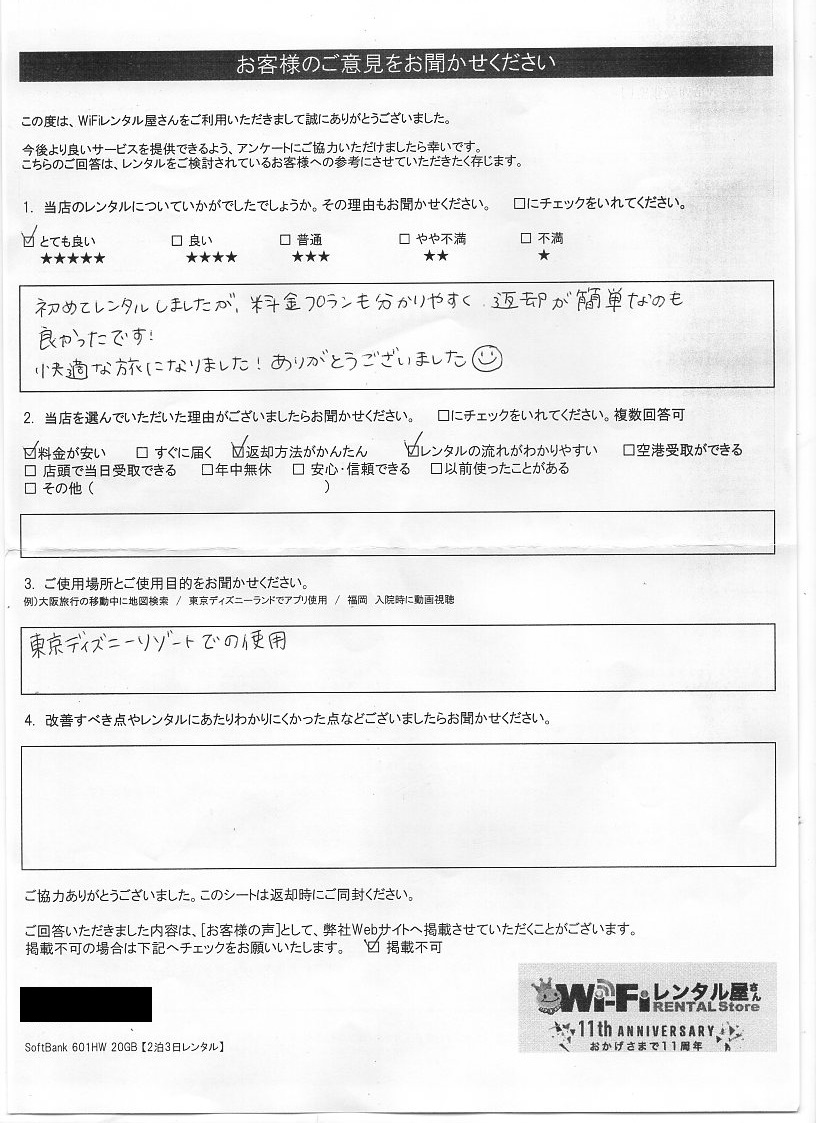 お客様のご意見をお聞かせください
この度は、WiFiレンタル屋さんをご利用いただきまして誠にありがとうございました。
今後より良いサービスを提供できるよう、アンケートにご協力いただけましたら幸いです。
こちらのご回答は、レンタルをご検討されているお客様への参考にさせていただきたく存じます。
1. 当店のレンタルについていかがでしたでしょうか。その理由もお聞かせください。 □にチェックをいれてください。
☑とても良い □ 良い □ 普通 □ やや不満 □ 不満
★★★★★ ★★★★ ★★★ ★★ ★
初めてレンタルしましたが、料金プランも分かりやすく、返却が簡単なのも
良かったです!
快適な旅になりました! ありがとうございました☺
2. 当店を選んでいただいた理由がございましたらお聞かせください。 □にチェックをいれてください。複数回答可
☑料金が安い □ すぐに届く ☑返却方法がかんたん ☑レンタルの流れがわかりやすい □空港受取ができる
□ 店頭で当日受取できる □年中無休 □ 安心・信頼できる □以前使ったことがある
□ その他 ( )
3. ご使用場所とご使用目的をお聞かせください。
例)大阪旅行の移動中に地図検索 / 東京ディズニーランドでアプリ使用 / 福岡 入院時に動画視聴
東京ディズニーリゾートでの使用
4. 改善すべき点やレンタルにあたりわかりにくかった点などございましたらお聞かせください。
ご協力ありがとうございました。このシートは返却時にご同封ください。
ご回答いただきました内容は、[お客様の声]として、弊社Webサイトへ掲載させていただくことがございます。
掲載不可の場合は下記へチェックをお願いいたします。 ☑ 掲載不可
Wi-Fiレンタル屋さん
RENTAL Store
11th ANNIVERSARY
おかげさまで11周年
SoftBank 601HW 20GB【2泊3日レンタル】